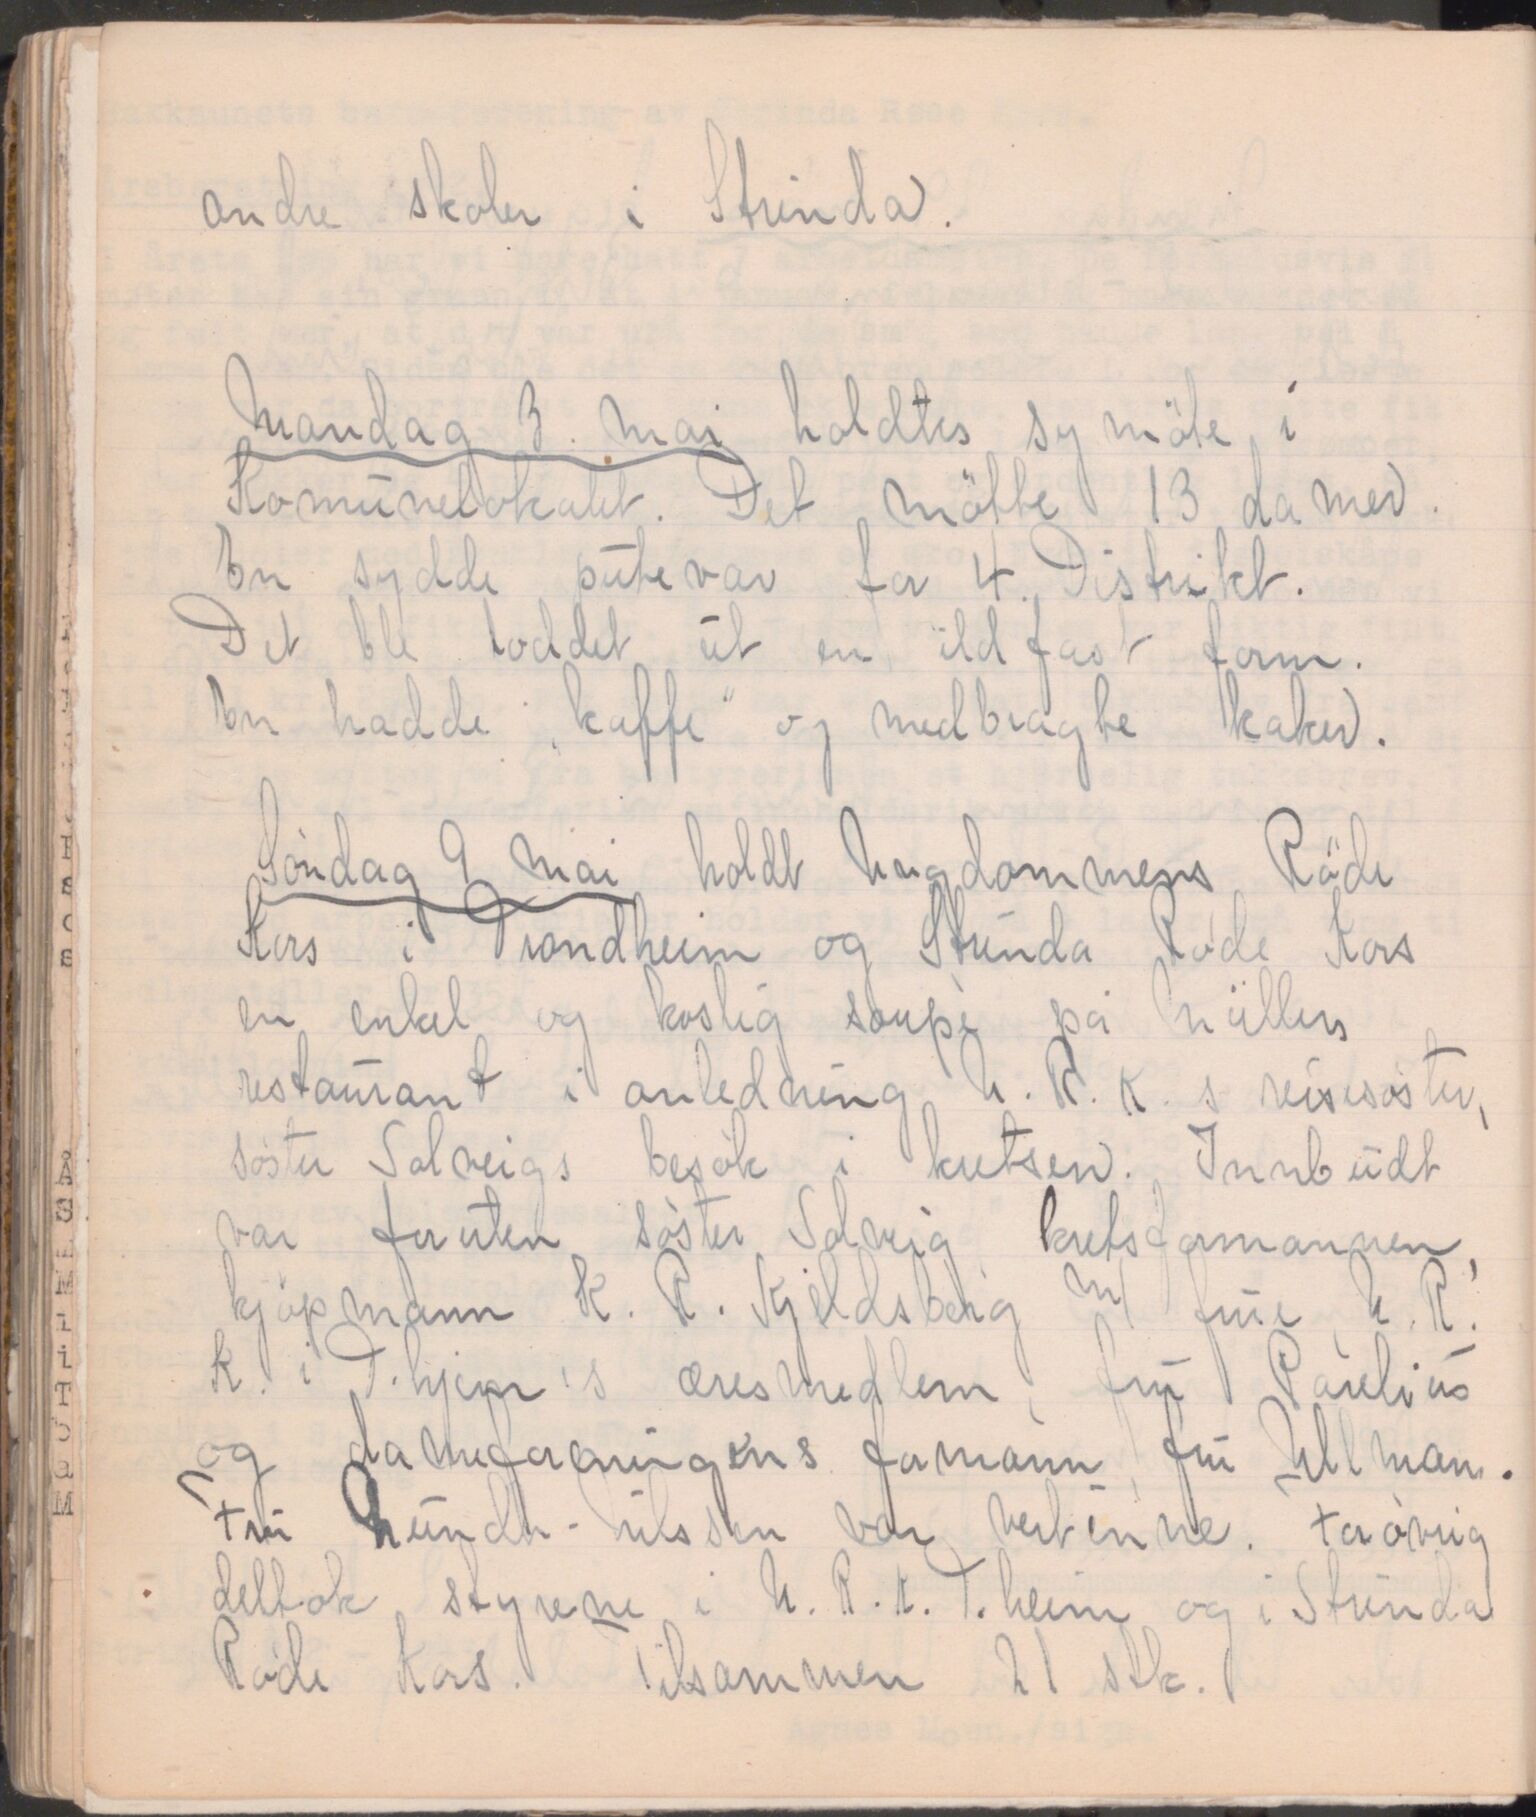 andre skoler i Strinda.
Mandag 3. mai holdtes symöte i
Komunelokalet. Det mötte 13 damer.
En sydde putevar for 4. Distrikt.
Det ble loddet ut en ildfast form.
En hadde "kaffe" og medbragte kaker.
Söndag 9 mai holdt Ungdommens Röde
Kors i Trondheim og Strinda Röde Kors
en enkel og koslig soupè på
restaurant i anledning U.R.K.s reisesöster,
söster Solveigs besök i kretsen. Innbudt
var foruten söster Solveig kretsformannen,
kjöpmann K. R. Kjeldsberg m/ frue, U. R.
K. i T.hjem's æresmedlem, fru Parelius
og dameforeningens formann, fru Ullman.
Fru Lunde-Nilssen var vertinne. Forövrig
deltok styrene i U.R.K. T.heim og i Strinda
Röde Kors. Tilsammen 21 stk.